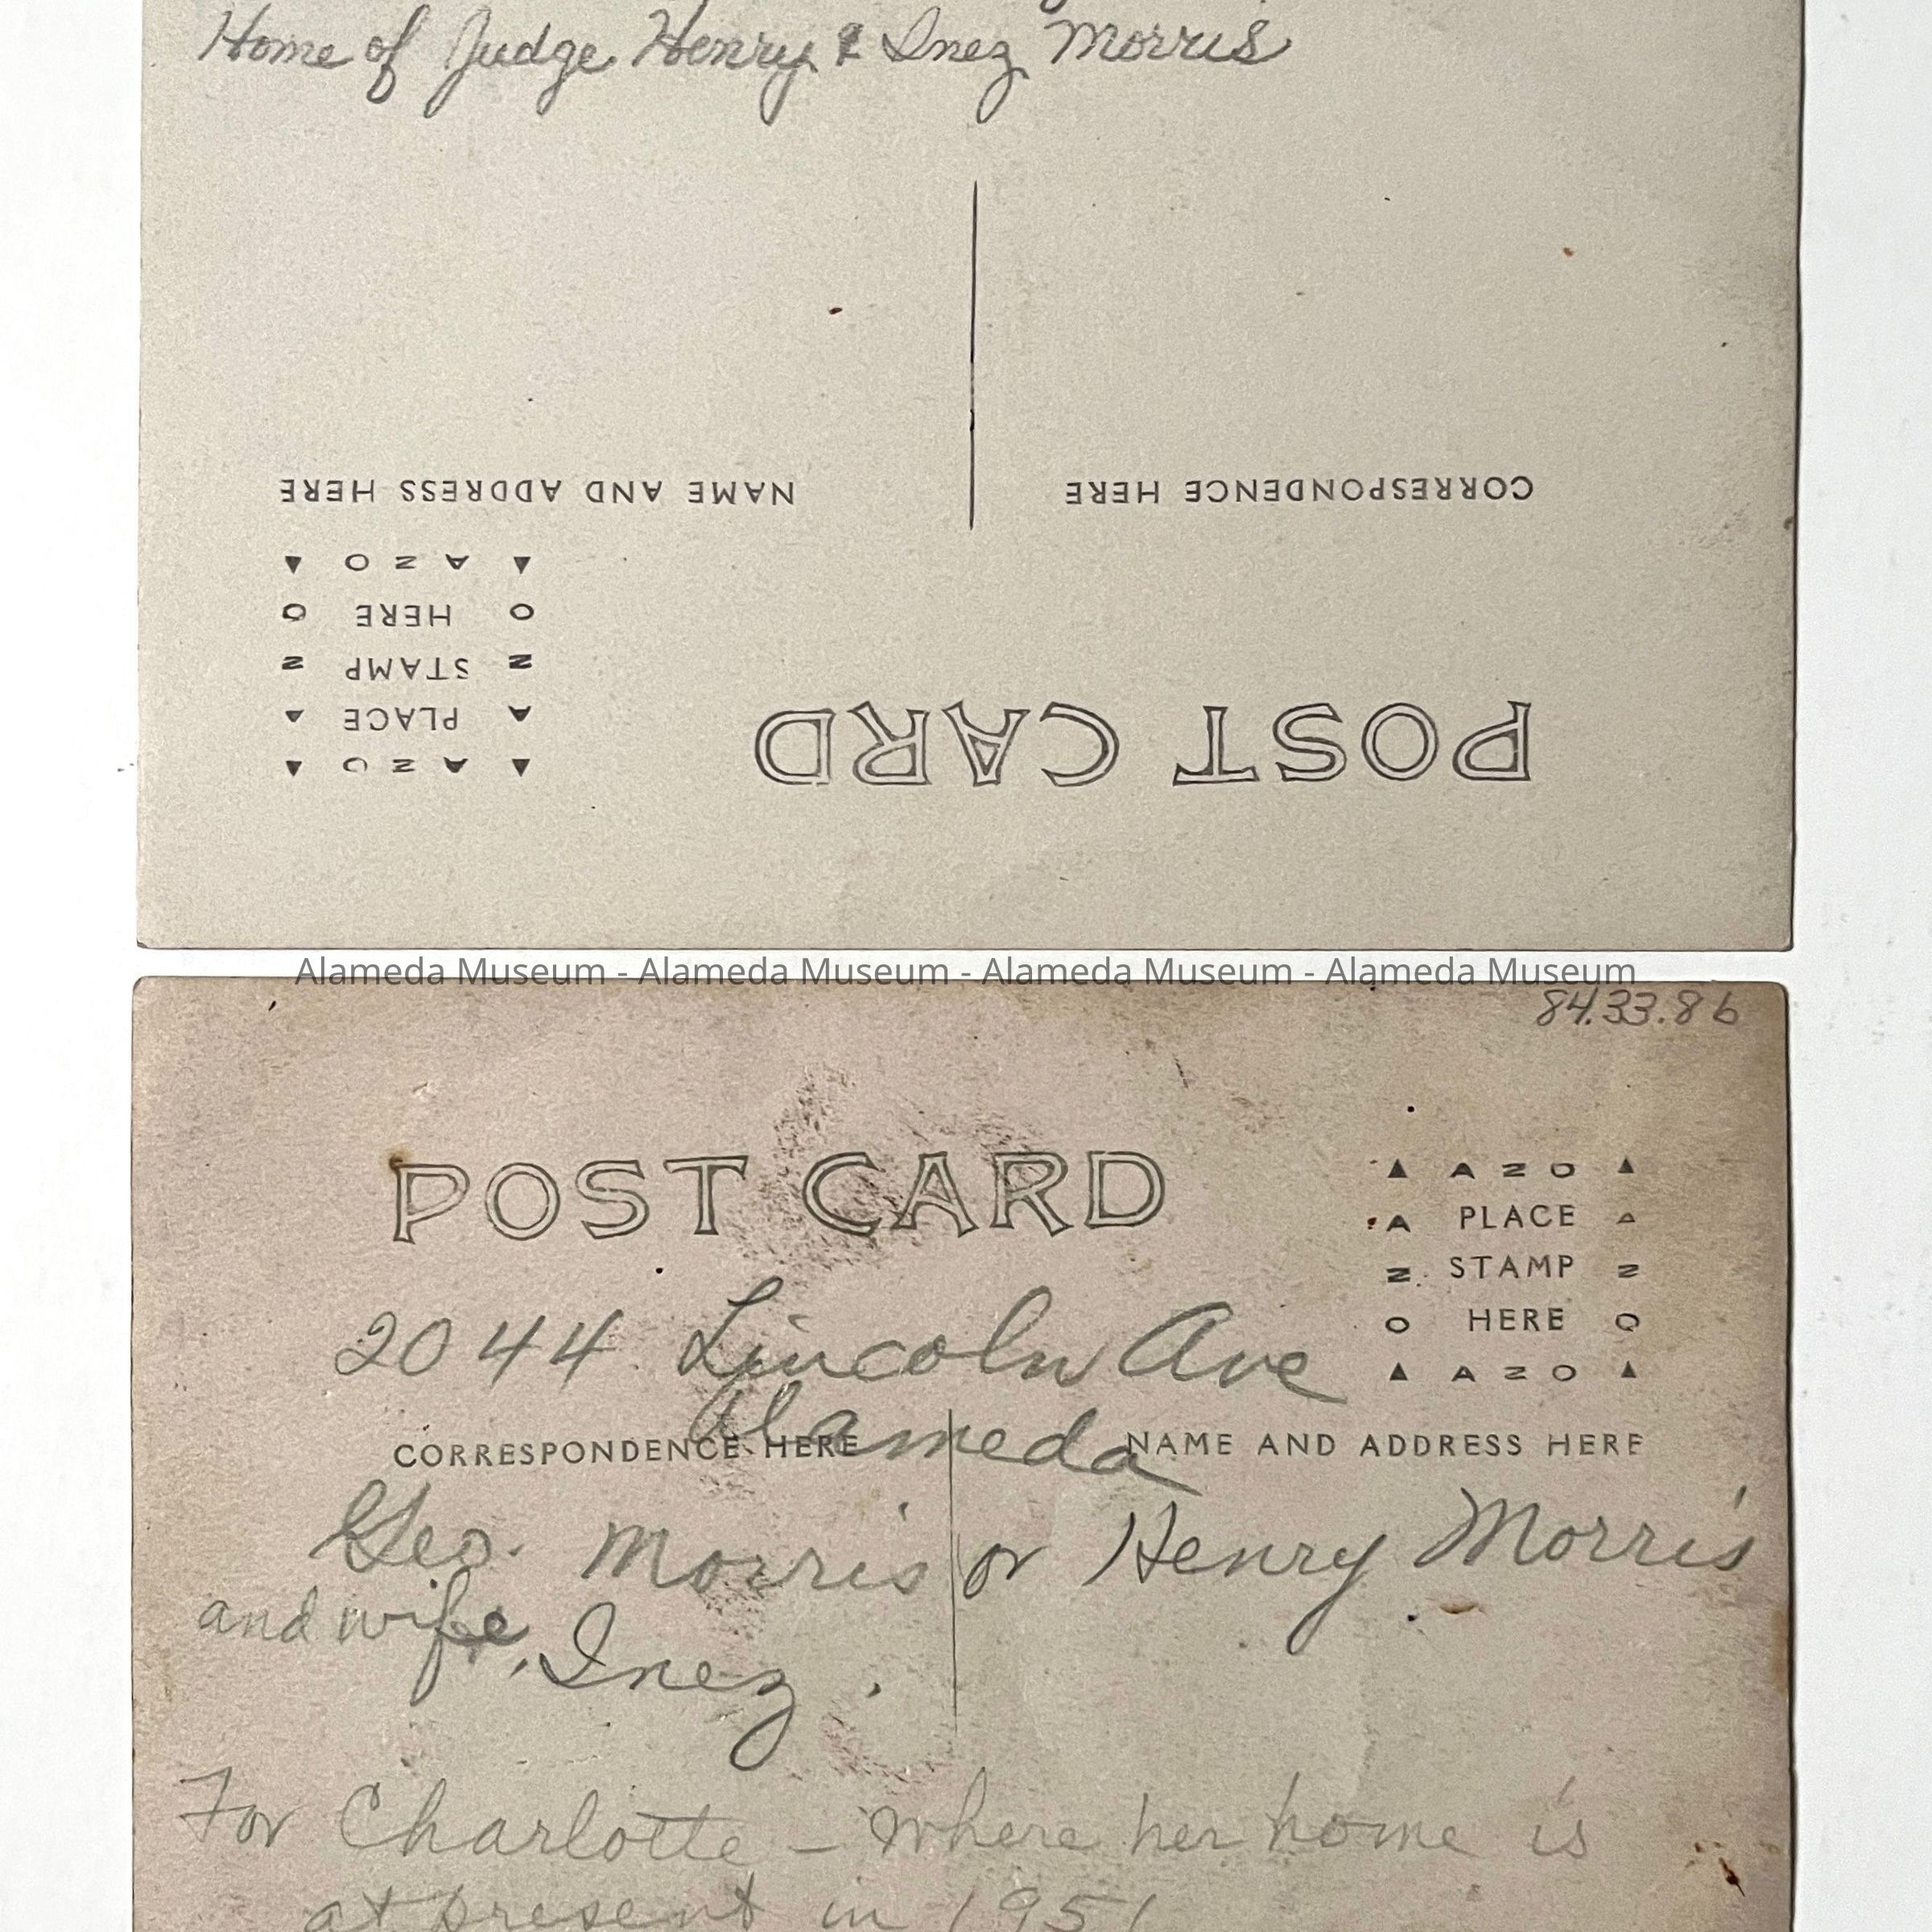 Home of Judge Henry & Inez Morris
CORRESPONDENCE HERE
NAME AND ADDRESS HERE
POST CARD
AZO
PLACE
STAMP
HERE
AZO
Alameda Museum - Alameda Museum - Alameda Museum - Alameda Museum
84.33.8b
POST CARD
AZO
A PLACE A
N STAMP N
O HERE O
AZO
2044 Lincoln Ave
Alameda
CORRESPONDENCE HERE
NAME AND ADDRESS HERE
Geo. Morris or Henry Morris
and wife, Inez.
For Charlotte - where her home is
at present in 1951